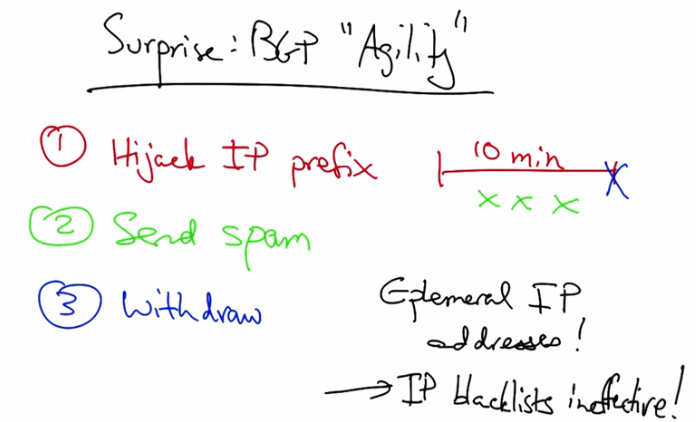 Surprise: BGP "Agility"
1 Hijack IP prefix
10 min
x x x
2 Send spam
3 Withdraw
Ephemeral IP
addresses!
→ IP blacklists ineffective!